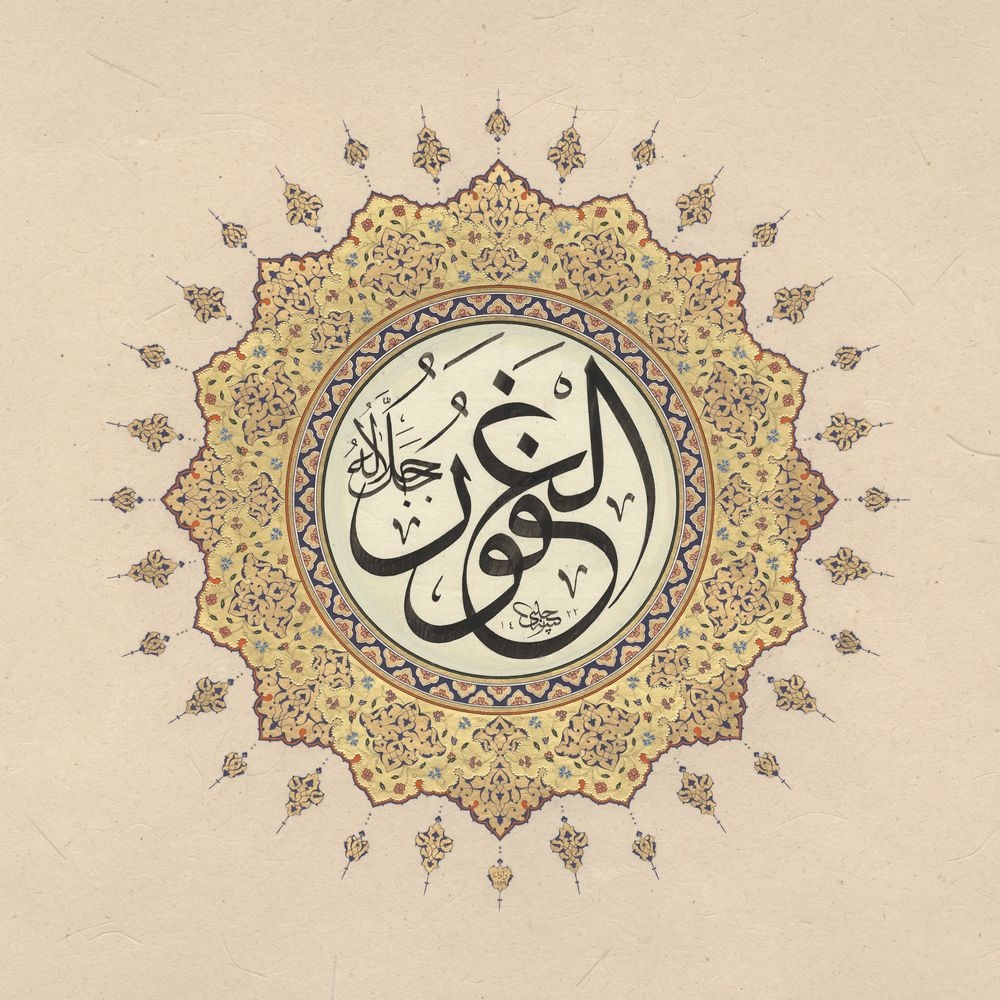 الغفور
جَلَّ جَلَالُهُ
١٤٢٢